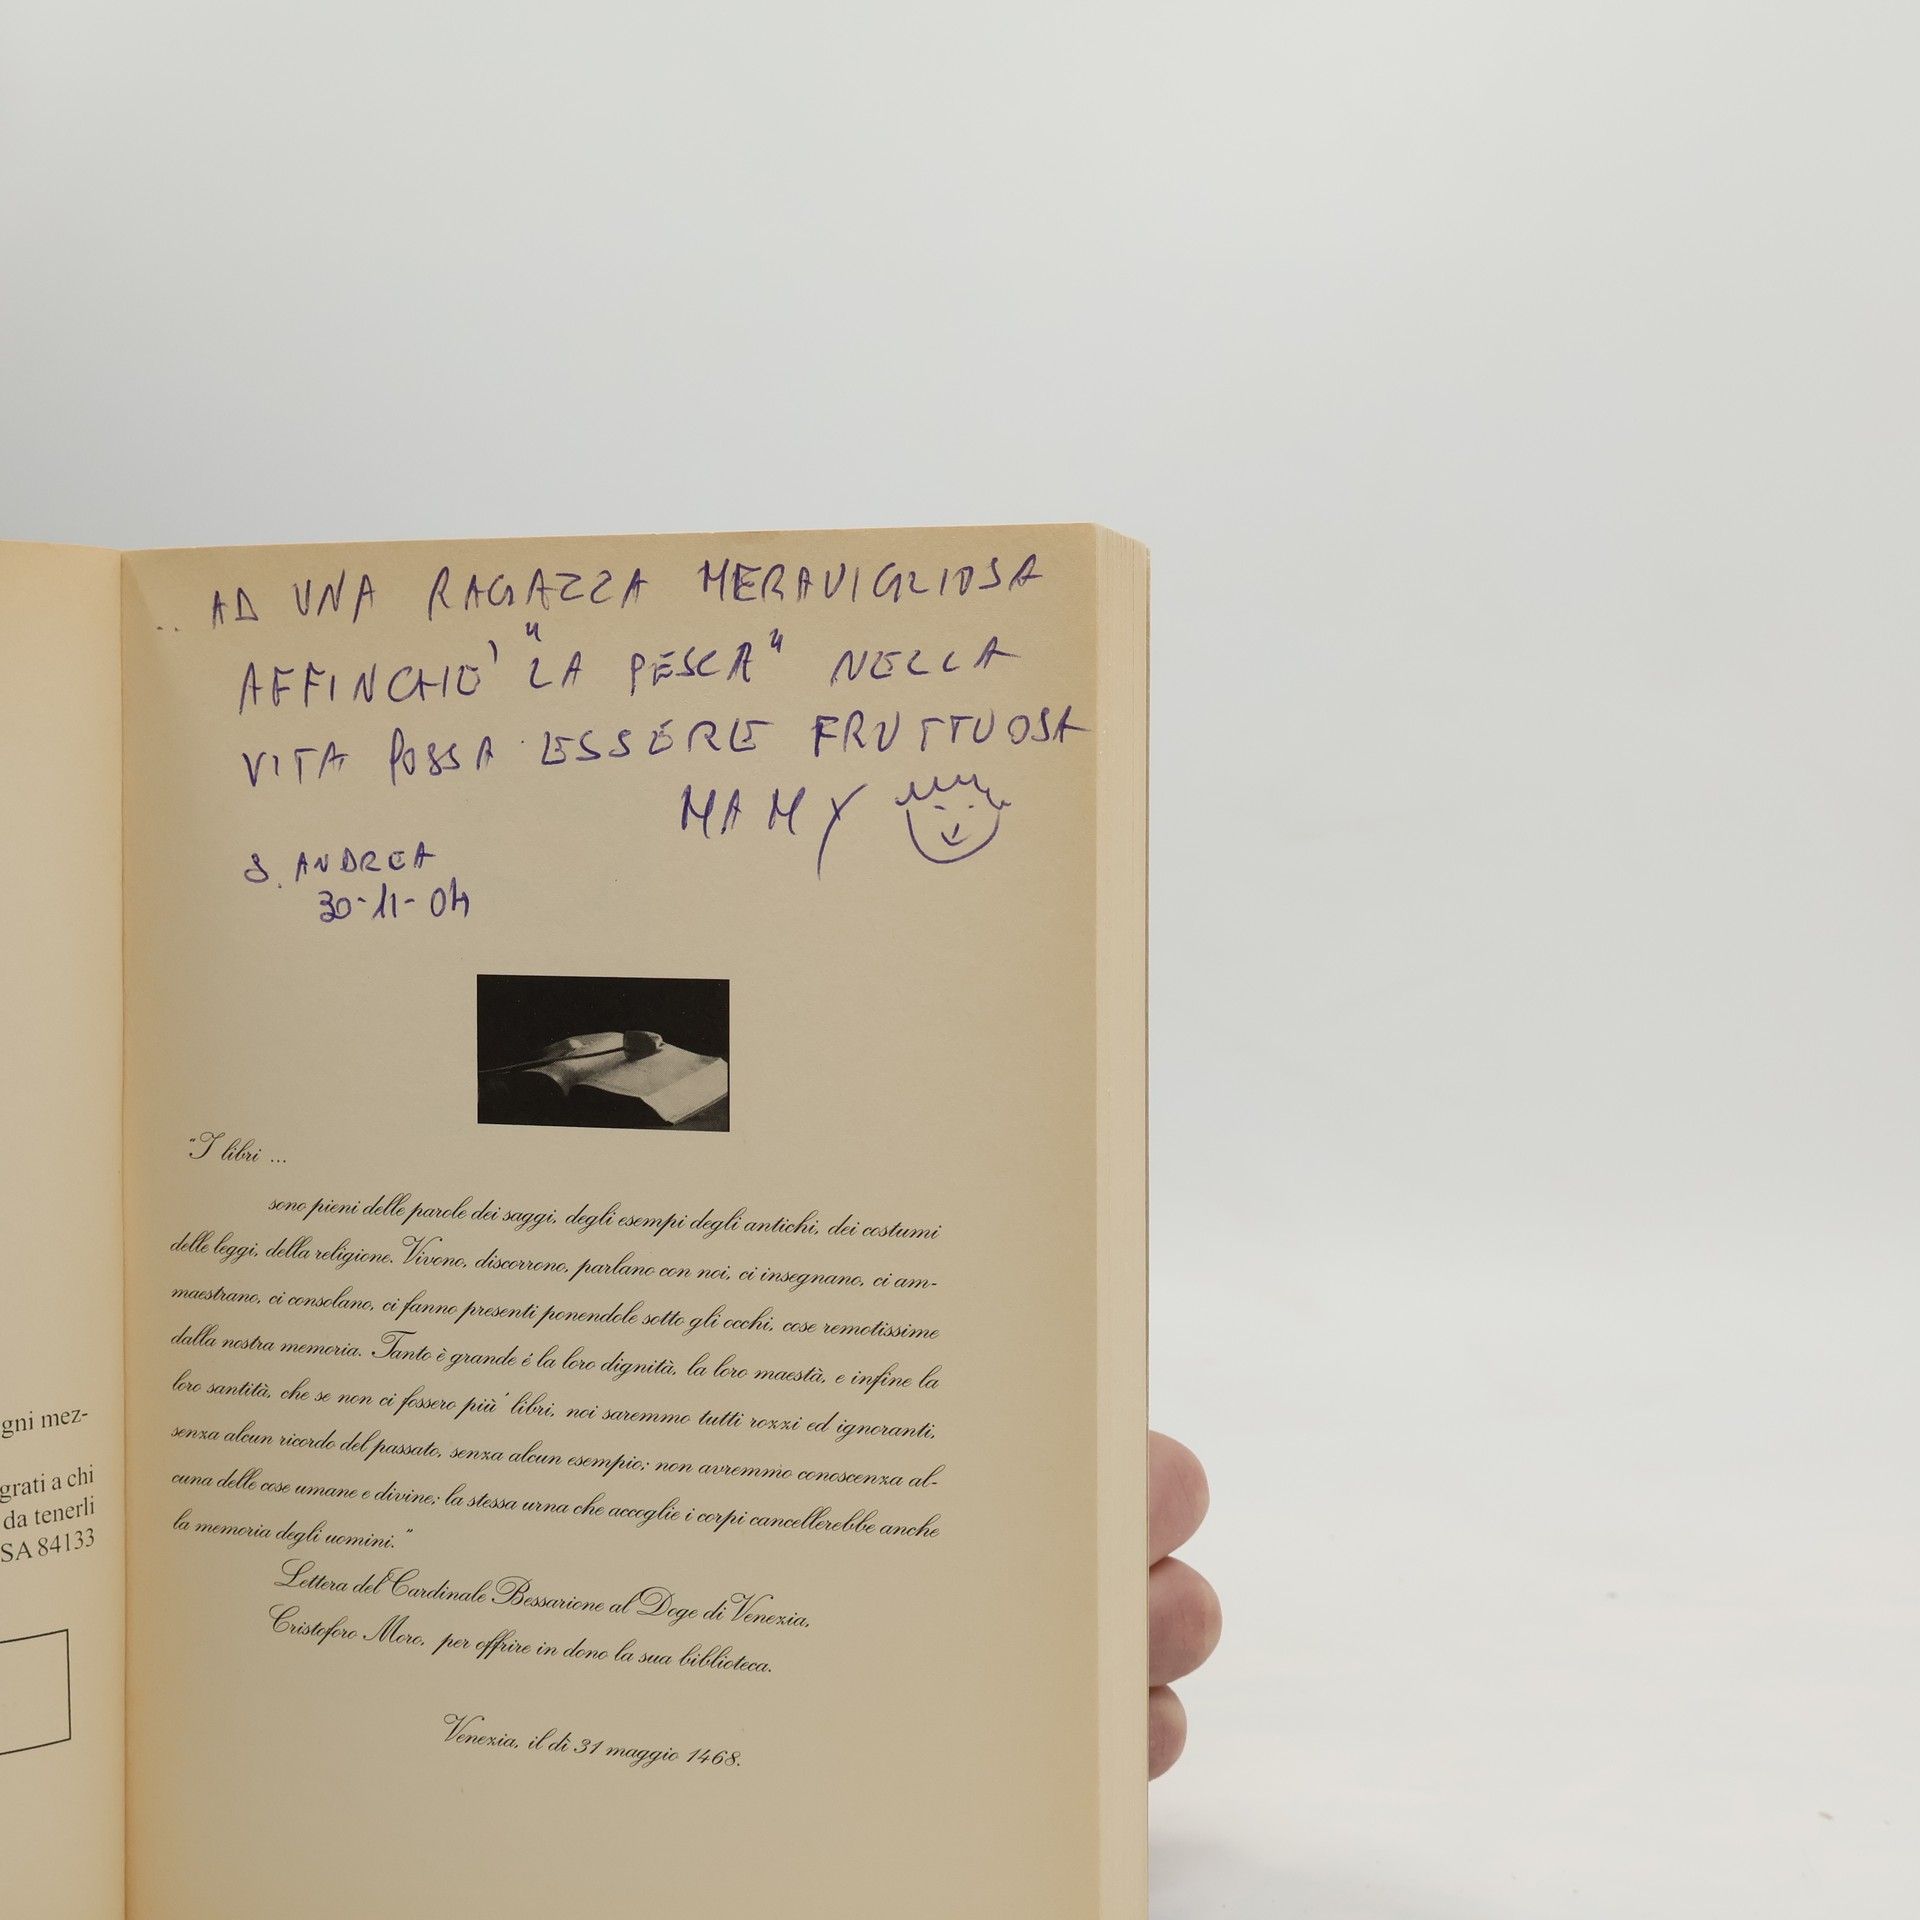 .. AD UNA RAGAZZA MERAVIGLIOSA
AFFINCHE' "LA PESCA" NELLA
VITA POSSA ESSERE FRUTTUOSA
MAMY
S. ANDREA
30-11-04
"I libri ...
sono pieni delle parole dei saggi, degli esempi degli antichi, dei costumi
delle leggi, della religione. Vivono, discorrono, parlano con noi, ci insegnano, ci am-
maestrano, ci consolano, ci fanno presenti ponendole sotto gli occhi, cose remotissime
dalla nostra memoria. Tanto è grande é la loro dignità, la loro maestà, e infine la
loro santità, che se non ci fossero più' libri, noi saremmo tutti rozzi ed ignoranti,
senza alcun ricordo del passato, senza alcun esempio; non avremmo conoscenza al-
cuna delle cose umane e divine; la stessa urna che accoglie i corpi cancellerebbe anche
la memoria degli uomini."
Lettera del Cardinale Bessarione al Doge di Venezia,
Cristoforo Moro, per offrire in dono la sua biblioteca.
Venezia, il dì 31 maggio 1468.
gni mez-
grati a chi
da tenerli
SA 84133